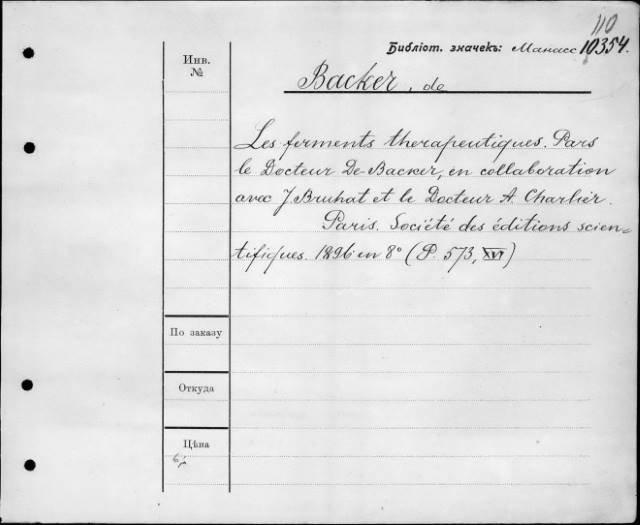 110
Библіот. значекъ: Манасс 10354.
Инв.
№
Backer, de
Les ferments therapeutiques. Pars
le Docteur De-Backer, en collaboration
avec J. Bruhat et le Docteur A. Charlier.
Paris. Société des éditions scien-
tifiques. 1896 en 8° (P. 573, XVI)
По заказу
Откуда
Цѣна